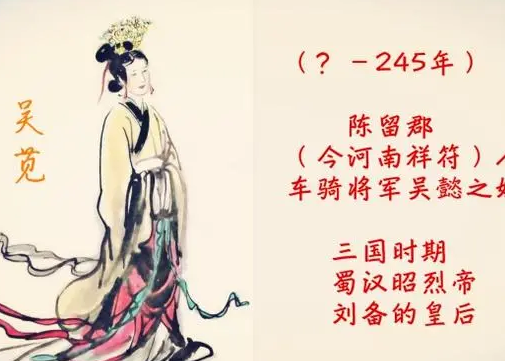 吴苋
（？－245年）
陈留郡
（今河南祥符）
车骑将军吴懿之
三国时期
蜀汉昭烈帝
刘备的皇后